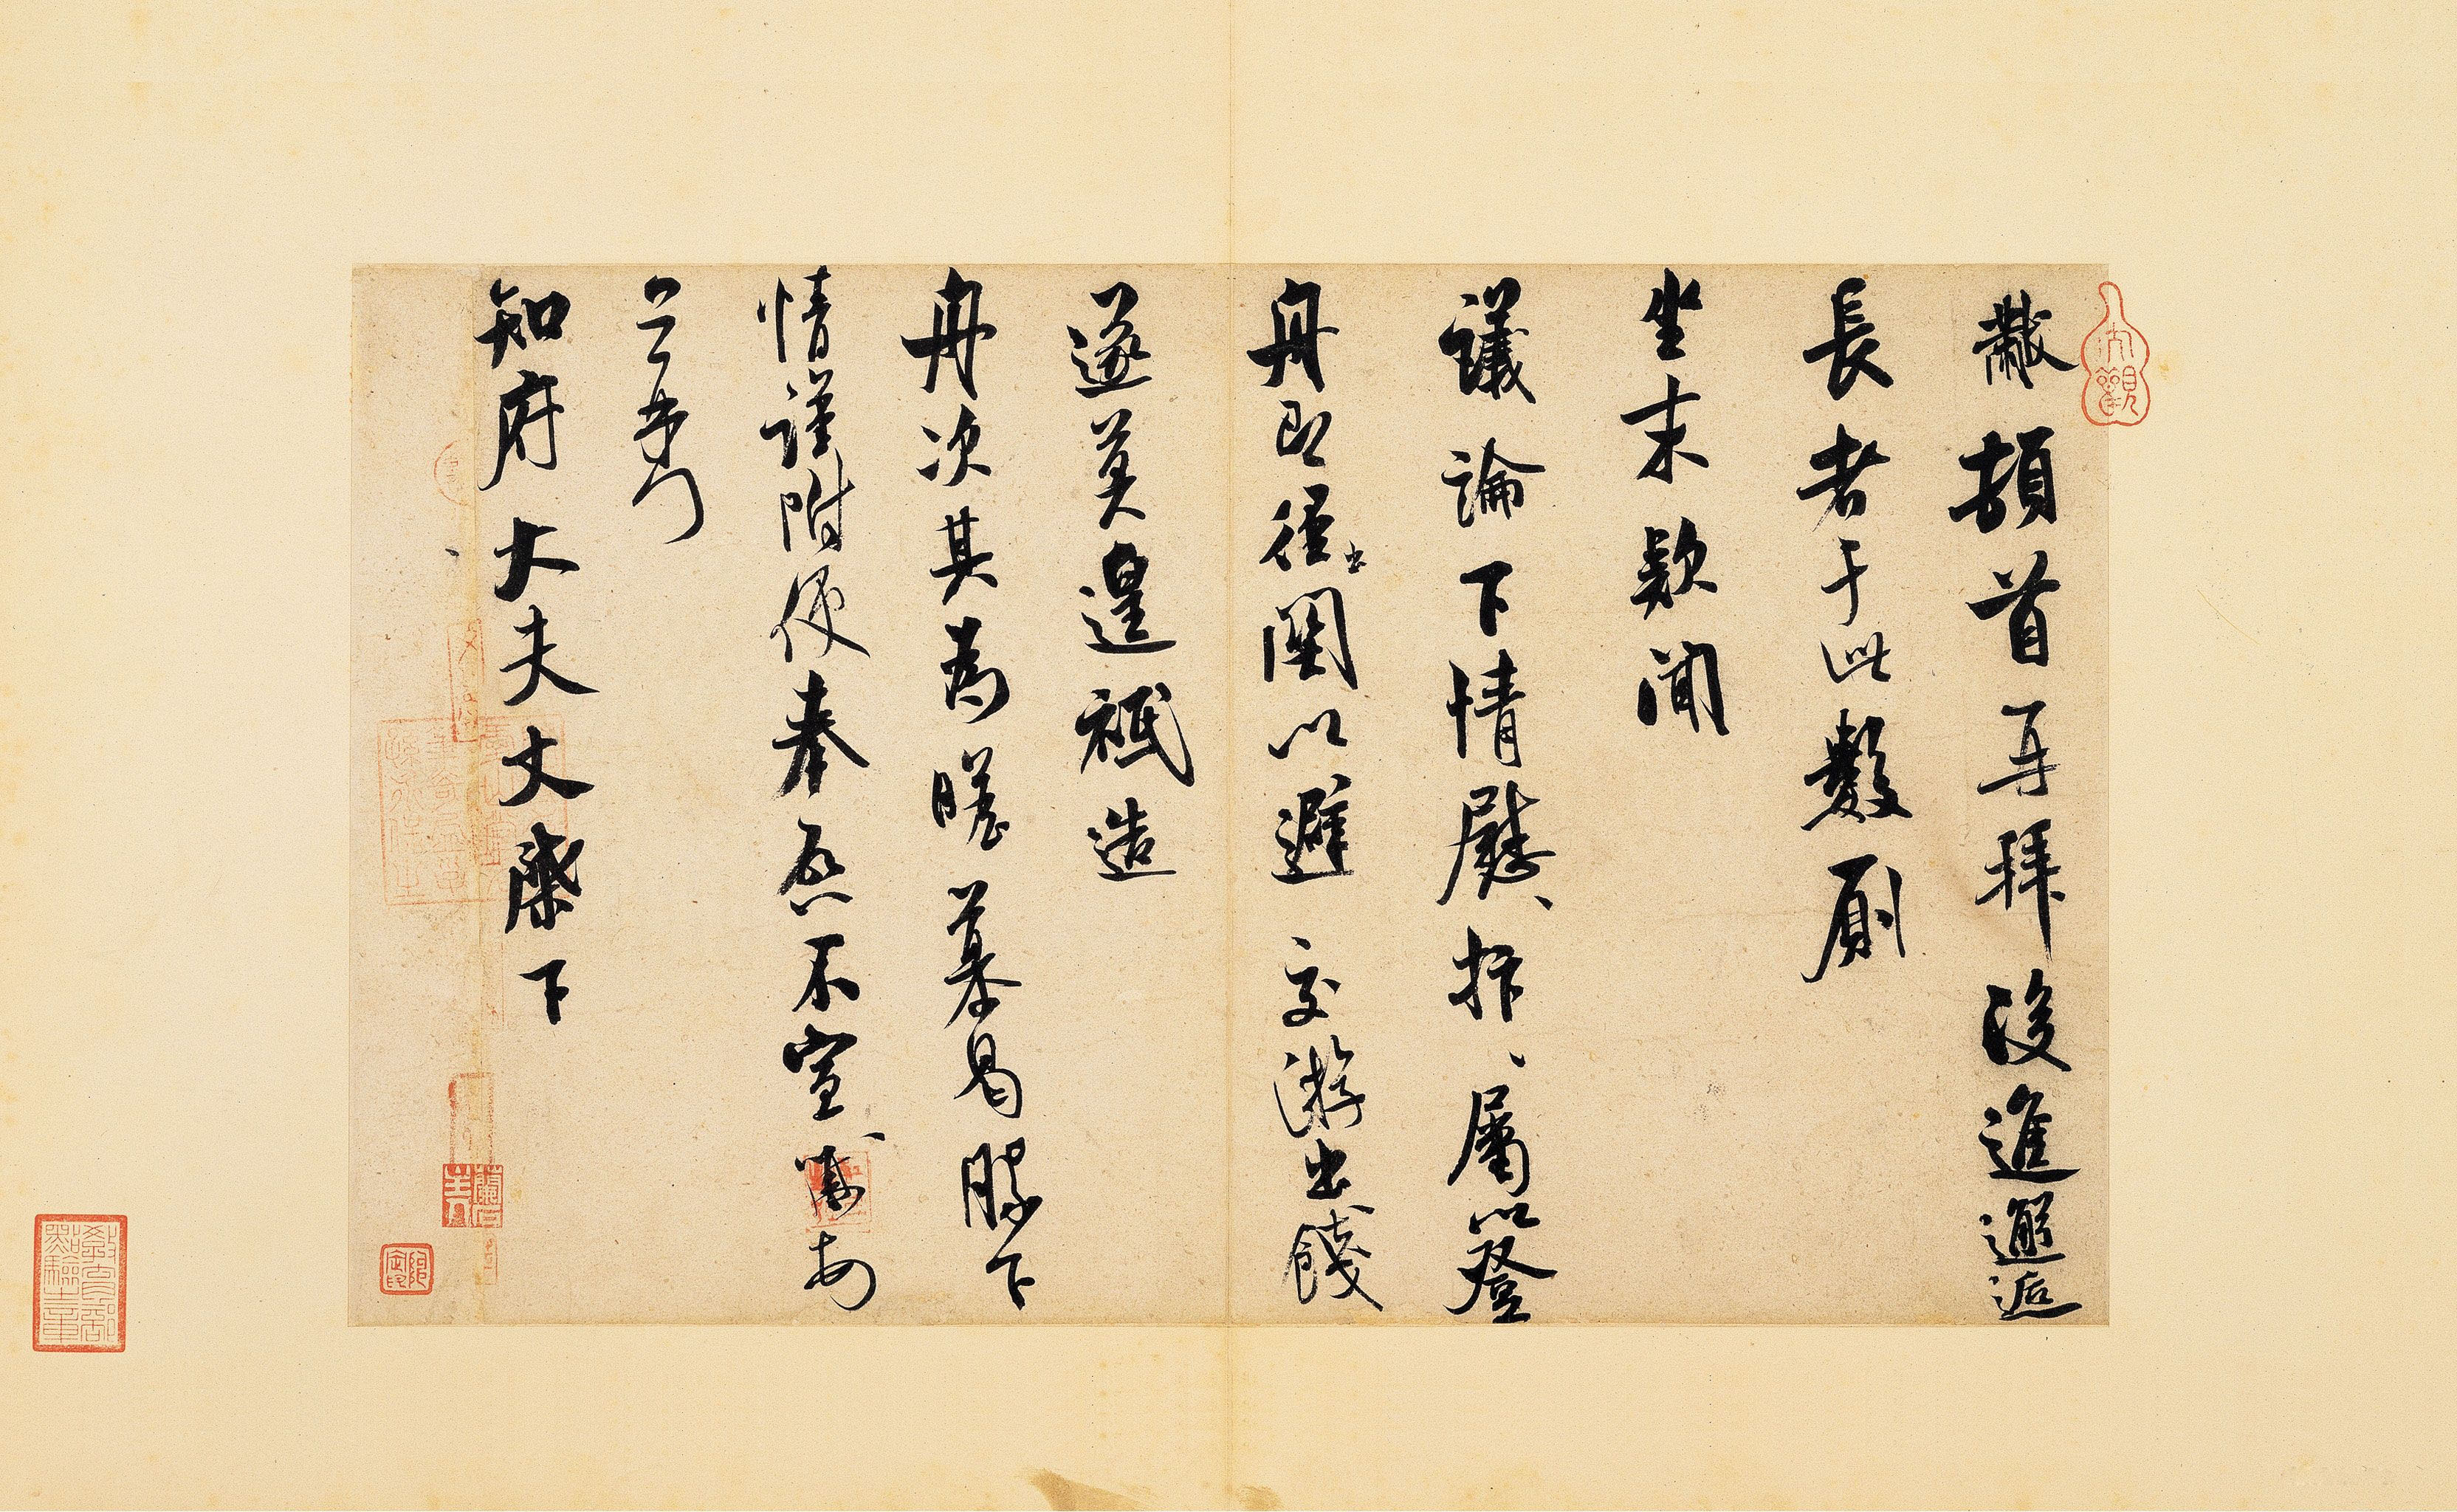 黻頓首再拜後進邂逅
長者于此數廁
坐末款聞
議論下情慰抃抃屬以登
舟即徑出關以避交游出餞
遂莫遑祗造
舟次其為瞻慕曷勝下
情謹附便奉啟不宣黻再
拜
知府大夫丈棨下
大觀